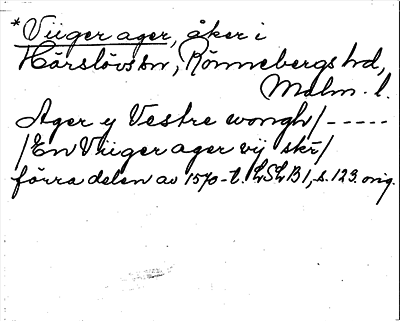 *Viiger ager, åker i
Hörslövs sn, Rönnebergs hd,
Malm. l.
Ager y Vestre wongh/-----
/En Viiger ager vij skr/
förra delen av 1570-t. LSLB 1, s. 123. orig.